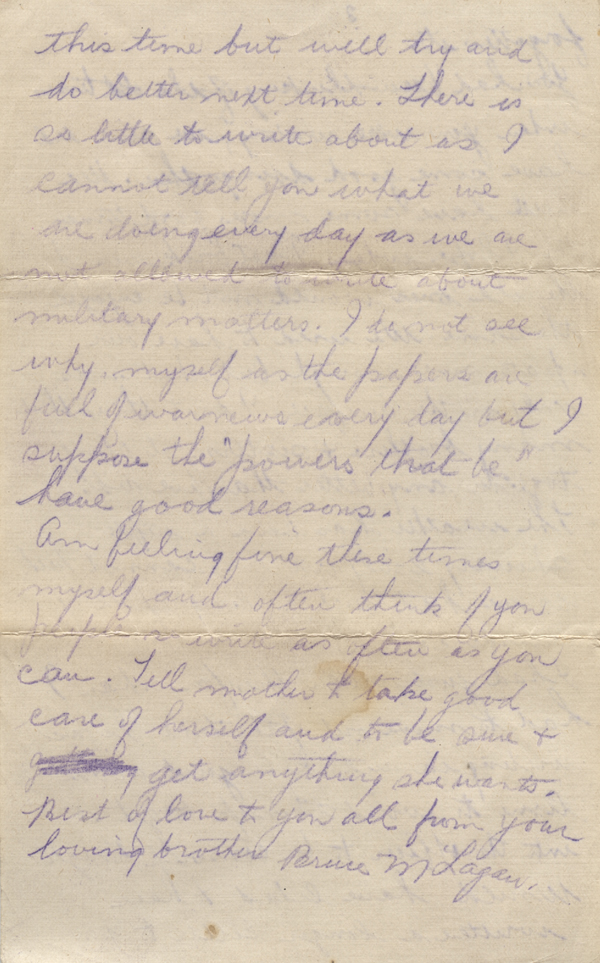 this time but will try and
do better next time. There is
so little to write about as I
cannot tell you what we
are doing every day as we are
not allowed to write about
military matters. I do not see
why, myself as the papers are
full of war news every day but I
suppose the "powers that be"
have good reasons.
Am feeling fine these times
myself and often think of you
people so write as often as you
can. Tell mother to take good
care of herself and to be sure +
get anything she wants.
Best of love to you all from your
loving brother Bruce McLagan.